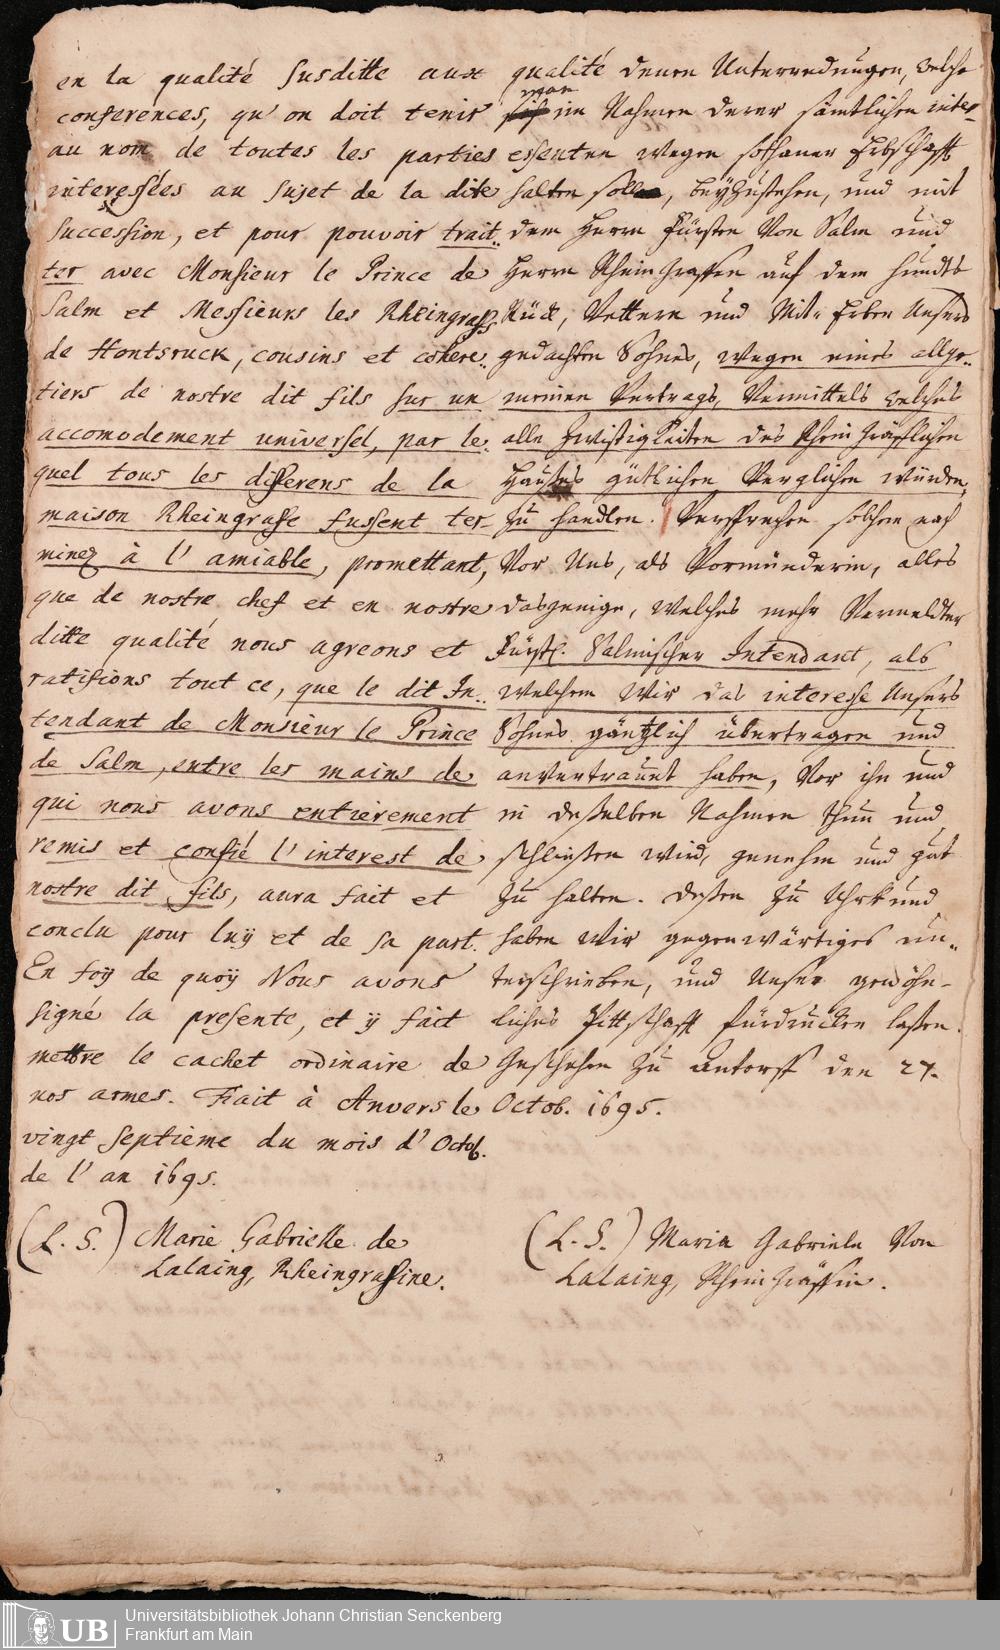 en la qualité susditte aux
conferences, qu' on doit tenir
au nom de toutes les parties
interessées au sujet de la dite
succession, et pour pouvoir trait..
ter avec Monsieur le Prince de
Salm et Messieurs les Rheingraffs
de Hontsruck, cousins et cohere..
tiers de nostre dit fils sur un
accomodement universel, par le..
quel tous les differens de la
maison Rheingraffe fussent ter-
minez à l' amiable, promettant,
que de nostre chef et en nostre
ditte qualité nous agreons et
ratifions tout ce, que le dit In..
tendant de Monsieur le Prince
de Salm, entre les mains de
qui nous avons entierement
remis et confié l' interest de
nostre dit fils, aura fait et
conclu pour luÿ et de sa part.
En foÿ de quoÿ Nous avons
signé la presente, et ÿ fait
mettre le cachet ordinaire de
nos armes. Fait à Anvers le
vingt septieme du mois d' Octob.
de l' an 1695.
(L. S.) Marie Gabrielle de
Lalaing, Rheingraffine.
qualité denen Unterredungen, welche
man
im Nahmen derer sämtlichen inter-
essenten wegen sothaner Erbschafft
halten solle, beÿzustehen, und mit
dem Herrn Fürsten Von Salm und
Herrn Rhein Graffen auf dem Hunds
Rück, Vettern und Mit-Erben Unsers
gedachten Sohnes, wegen eines allge..
meinen Vertrags, Vermittels welches
alle Zwistigkeiten des Rhein Gräfflichen
Haußes gütlichen Verglichen würden,
zu handlen. Versprechen solchem nach
Vor Uns, als Vormünderin, alles
dasjenige, welches mehr Vermeldter
Fürstl. Salmischer Intendant, als
welchem Wir das interesse Unsers
Sohnes gäntzlich übertragen und
anvertrauet haben, Vor ihn und
in deßelben Nahmen thun und
schließen wird, genehm und gut
zu halten. Deßen zu Uhrkund
haben Wir gegenwärtiges un..
terschrieben, und Unser gewöhn-
liches Pittschafft fürdrucken laßen.
Geschehen zu Antorff den 27.
Octob. 1695.
(L. S.) Maria Gabriele Von
Lalaing, Rhein Gräffin.
UB
Universitätsbibliothek Johann Christian Senckenberg
Frankfurt am Main